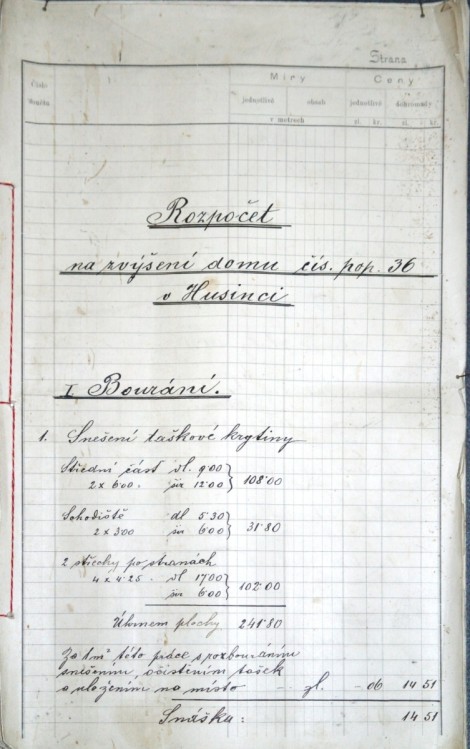 Strana
Číslo Míry Ceny
jednotlivé obsah jednotlivé dohromady
v metrech zl. kr. zl. kr.
Rozpočet
na zvýšení domu čís. pop. 36
v Husinci
I. Bourání.
1. Snešení taškové krytiny
Střední část dl. 9·00
2 x 6·00. šir 12·00 } 108·00
Schodiště dl 5·30
2 x 3·00 šir 6·00 } 31·80
2 střechy po stranách
4 x 4·25. dl 17·00
šir 6·00 } 102·00
Úhrnem plochy 241·80
Za 1 m² této práce s rozbouráním
snešením, očistěním tašek
a uložením na místo - zl. - 06 14 51
Snáška: 14 51